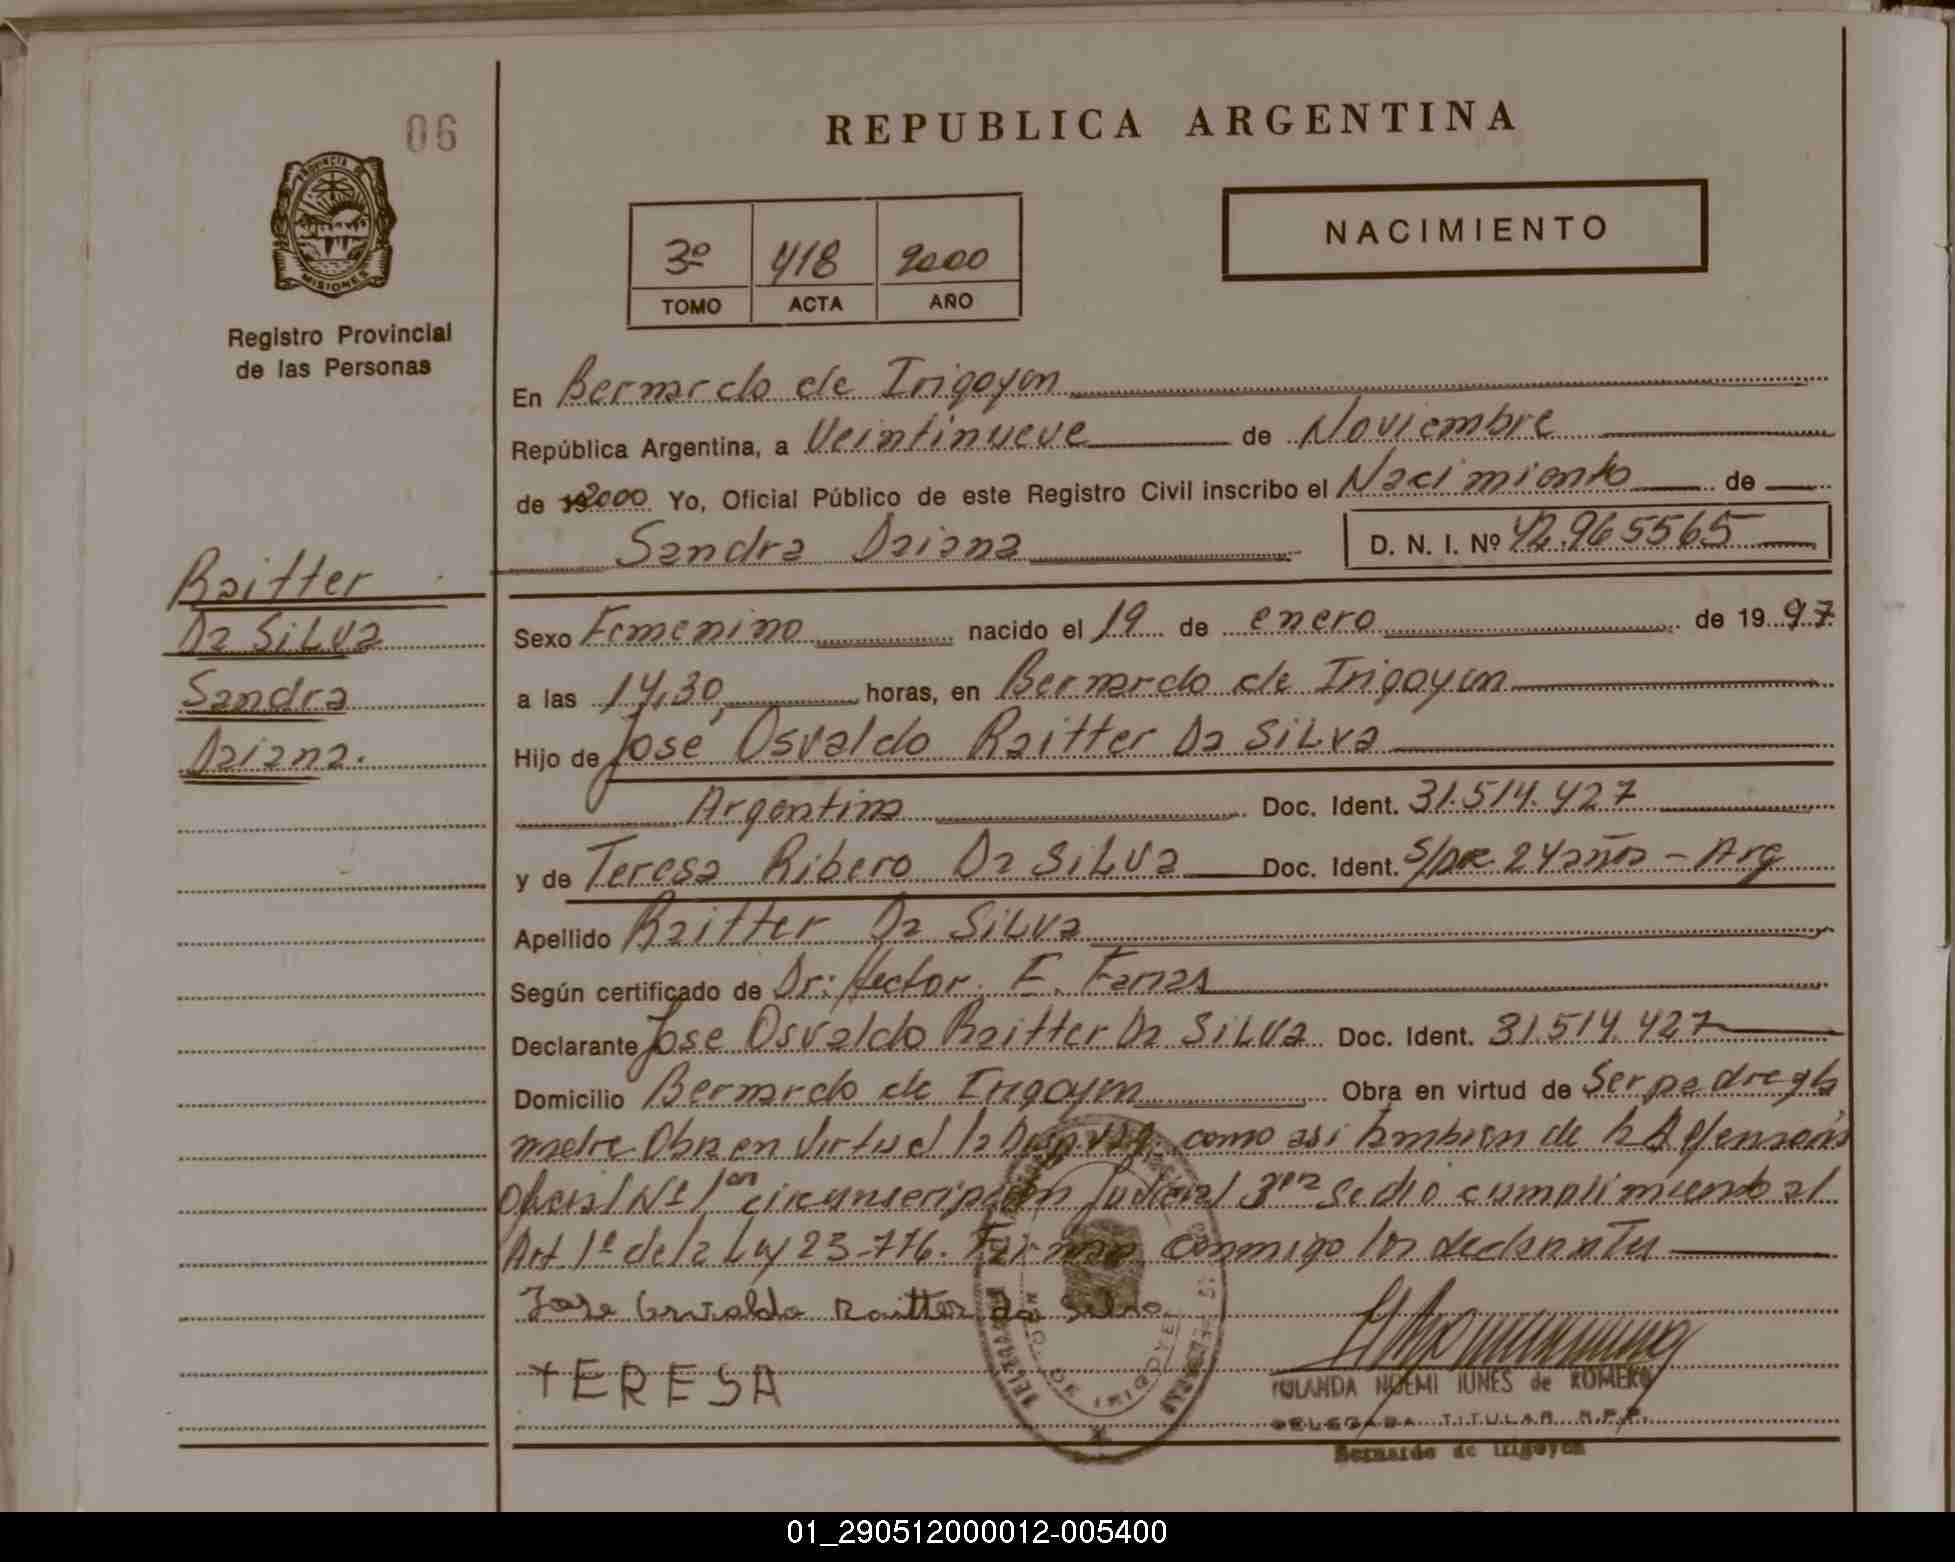 06
REPUBLICA ARGENTINA
PROVINCIA DE MISIONES
Registro Provincial
de las Personas
3º 418 2000
TOMO ACTA AÑO
NACIMIENTO
En Bernardo de Irigoyen
República Argentina, a Veintinueve de Noviembre
de 192000 Yo, Oficial Público de este Registro Civil inscribo el Nacimiento de
Sandra Daiana D. N. I. Nº 42.965565
Raitter
Da SiLva
Sandra
Daiana.
Sexo Femenino nacido el 19 de enero de 1997
a las 14,30 horas, en Bernardo de Irigoyen
Hijo de José Osvaldo Raitter Da SiLva
Argentina Doc. Ident. 31.514.427
y de Teresa Ribero Da SiLva Doc. Ident. S/pre. 24 años - Arg
Apellido Raitter Da SiLva
Según certificado de Dr: Hector. E. Farias
Declarante Jose Osvaldo Raitter Da SiLva Doc. Ident. 31.514.427
Domicilio Bernardo de Irigoyen Obra en virtud de Ser padre y la
madre Obra en Virtud la como asi tambien de la
oficial Nº 1 circunscripcion Judicial 3ra Se dio cumplimiento al
Art 1º de la Ley 23.776. Firman conmigo los declarantes
Jose Osvaldo Raitter da Silva
TERESA
YOLANDA NOEMI IUNES de ROMERO
DELEGADA TITULAR R.P.P.
Bernardo de Irigoyen
01_290512000012-005400